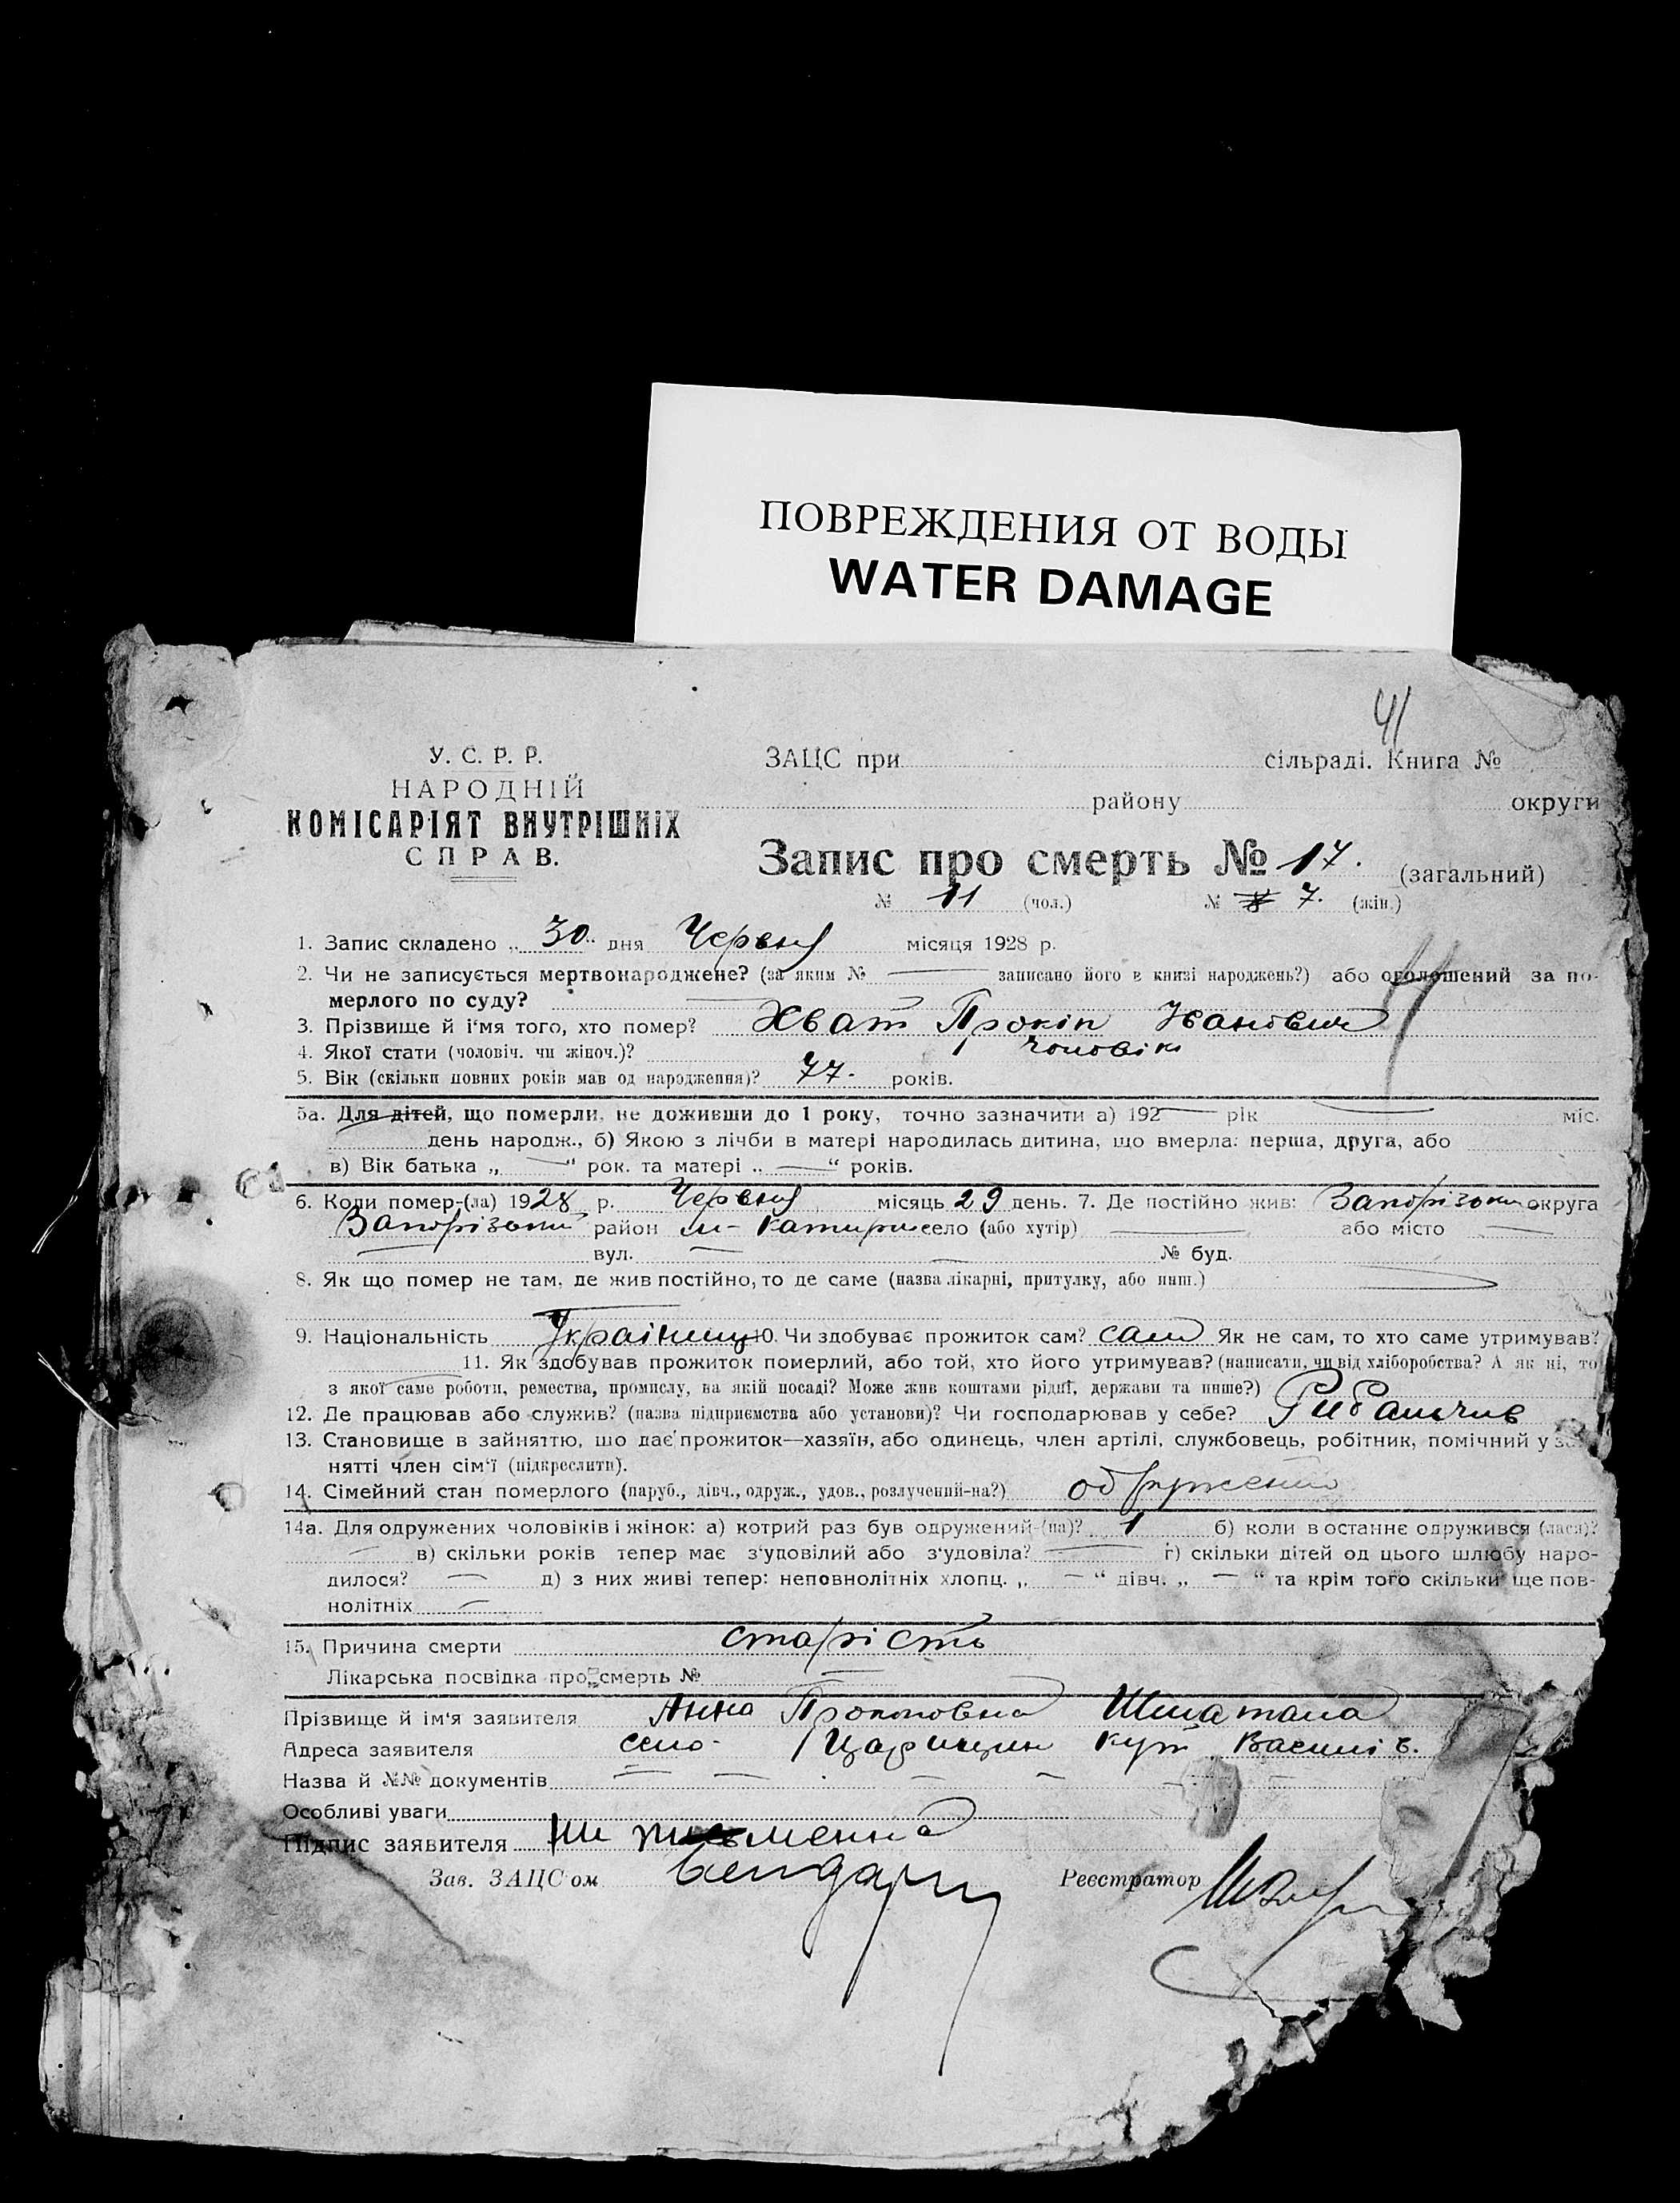 ПОВРЕЖДЕНИЯ ОТ ВОДЫ
WATER DAMAGE
41
У. С. Р. Р.
НАРОДНІЙ
КОМІСАРІЯТ ВНУТРІШНІХ
СПРАВ.
ЗАЦС при сільраді. Книга №
району округи
Запис про смерть № 17. (загальний)
№ 11 (чол.) № 7. (жін.)
1. Запис складено „ 30 " дня Червня місяця 1928 р.
2. Чи не записується мертвонароджене? (за яким № записано його в книзі народжень?) або оголошений за по-
мерлого по суду?
3. Прізвище й і'мя того, хто помер? Хват Прокіп Иванович
4. Якої стати (чоловіч. чи жіноч.)? чоловік
5. Вік (скільки повних років мав од народження)? 77. років.
5а. Для дітей, що померли, не доживши до 1 року, точно зазначити а) 192 рік міс.
день народж., б) Якою з лічби в матері народилась дитина, що вмерла: перша, друга, або
в) Вік батька „ " рок. та матері „ " років.
6. Коли помер-(ла) 1928 р. Червня місяць 29 день. 7. Де постійно жив: округа
район село (або хутір) або місто
вул. № буд.
8. Як що помер не там, де жив постійно, то де саме (назва лікарні, притулку, або инш.)
9. Національність Українець 10. Чи здобуває прожиток сам? сам Як не сам, то хто саме утримував?
11. Як здобував прожиток померлий, або той, хто його утримував? (написати, чи від хліборобства? А як ні, то
з якої саме роботи, ремества, промислу, на якій посаді? Може жив коштами рідні, держави та инше?)
12. Де працював або служив? (назва підприємства або установи)? Чи господарював у себе?
13. Становище в зайняттю, що дає прожиток—хазяїн, або одинець, член артілі, службовець, робітник, помічний у за-
нятті член сім'ї (підкреслити).
14. Сімейний стан померлого (паруб., дівч., одруж., удов., розлучений-на?)
14а. Для одружених чоловіків і жінок: а) котрий раз був одружений-(на)? 1 б) коли в останнє одружився (лася)?
в) скільки років тепер має з'удовілий або з'удовіла? г) скільки дітей од цього шлюбу наро-
дилося? д) з них живі тепер: неповнолітніх хлопц. „ — " дівч. „ — " та крім того скільки ще пов-
нолітніх
15. Причина смерти старість
Лікарська посвідка про смерть №
Прізвище й ім'я заявителя Анна Прокоповна
Адреса заявителя село - Царицин Кут Василів.
Назва й №№ документів
Особливі уваги
Підпис заявителя ни письменна
Зав. ЗАЦС'ом Реєстратор